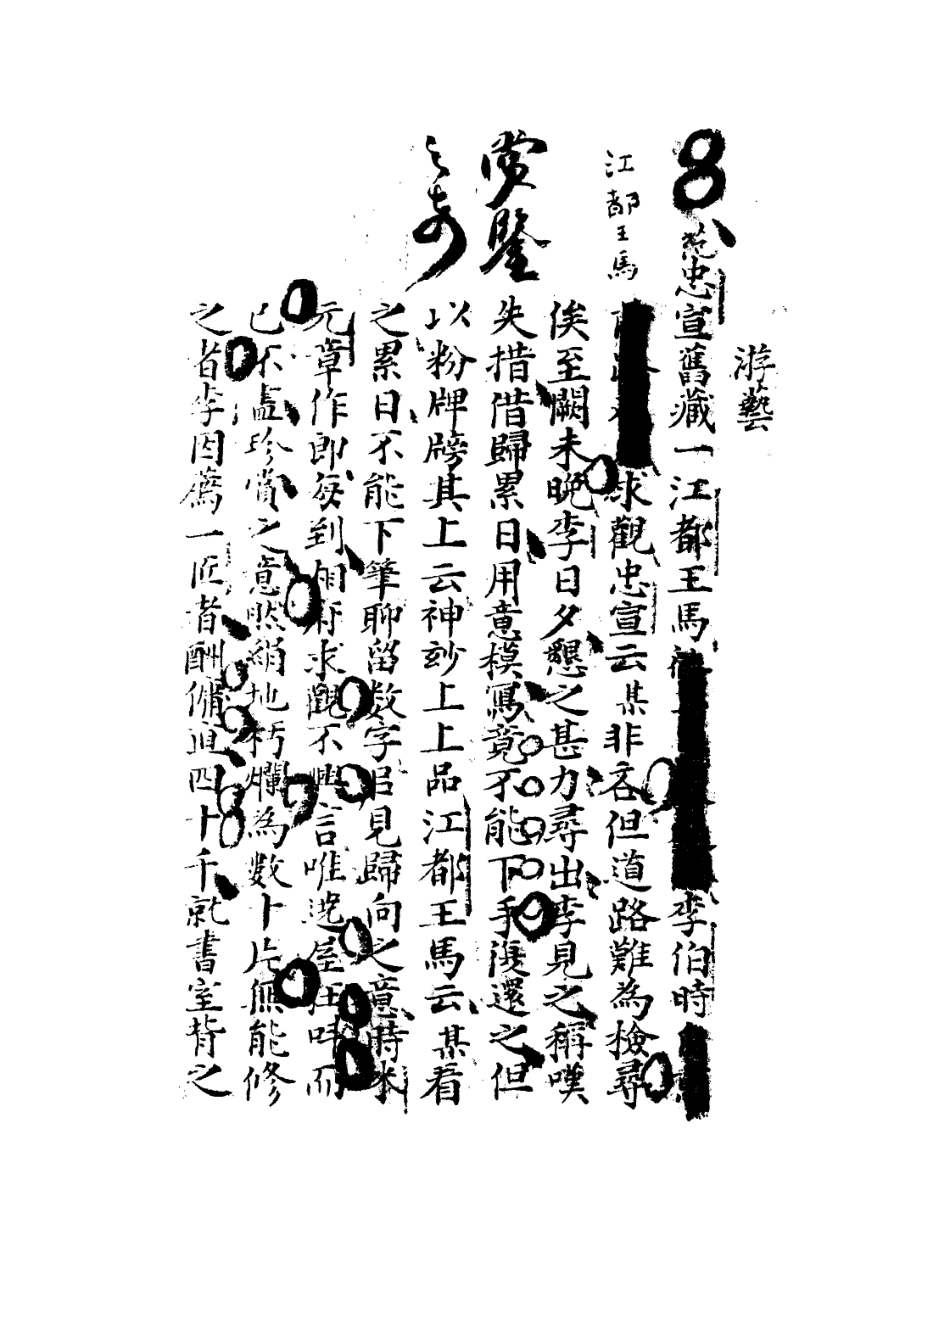 游藝
范忠宣舊藏一江都王馬 李伯時
求觀忠宣云某非吝但道路難為檢尋
俟至闕未晚李日夕懇之甚力尋出李見之稱嘆
失措借歸累日用意模寫竟不能下手復還之但
以粉牌牓其上云神妙上上品江都王馬云某看
之累日不能下筆聊留数字㠯見歸向之意時米
元章作郎每到相府求觀不與言唯遶屋狂呌而
已不盡珍賞之意然絹地朽爛為數十片無能修
之者李因薦一匠者酬傭直四十千就書室背之
江都王馬
賞鑒
之奇